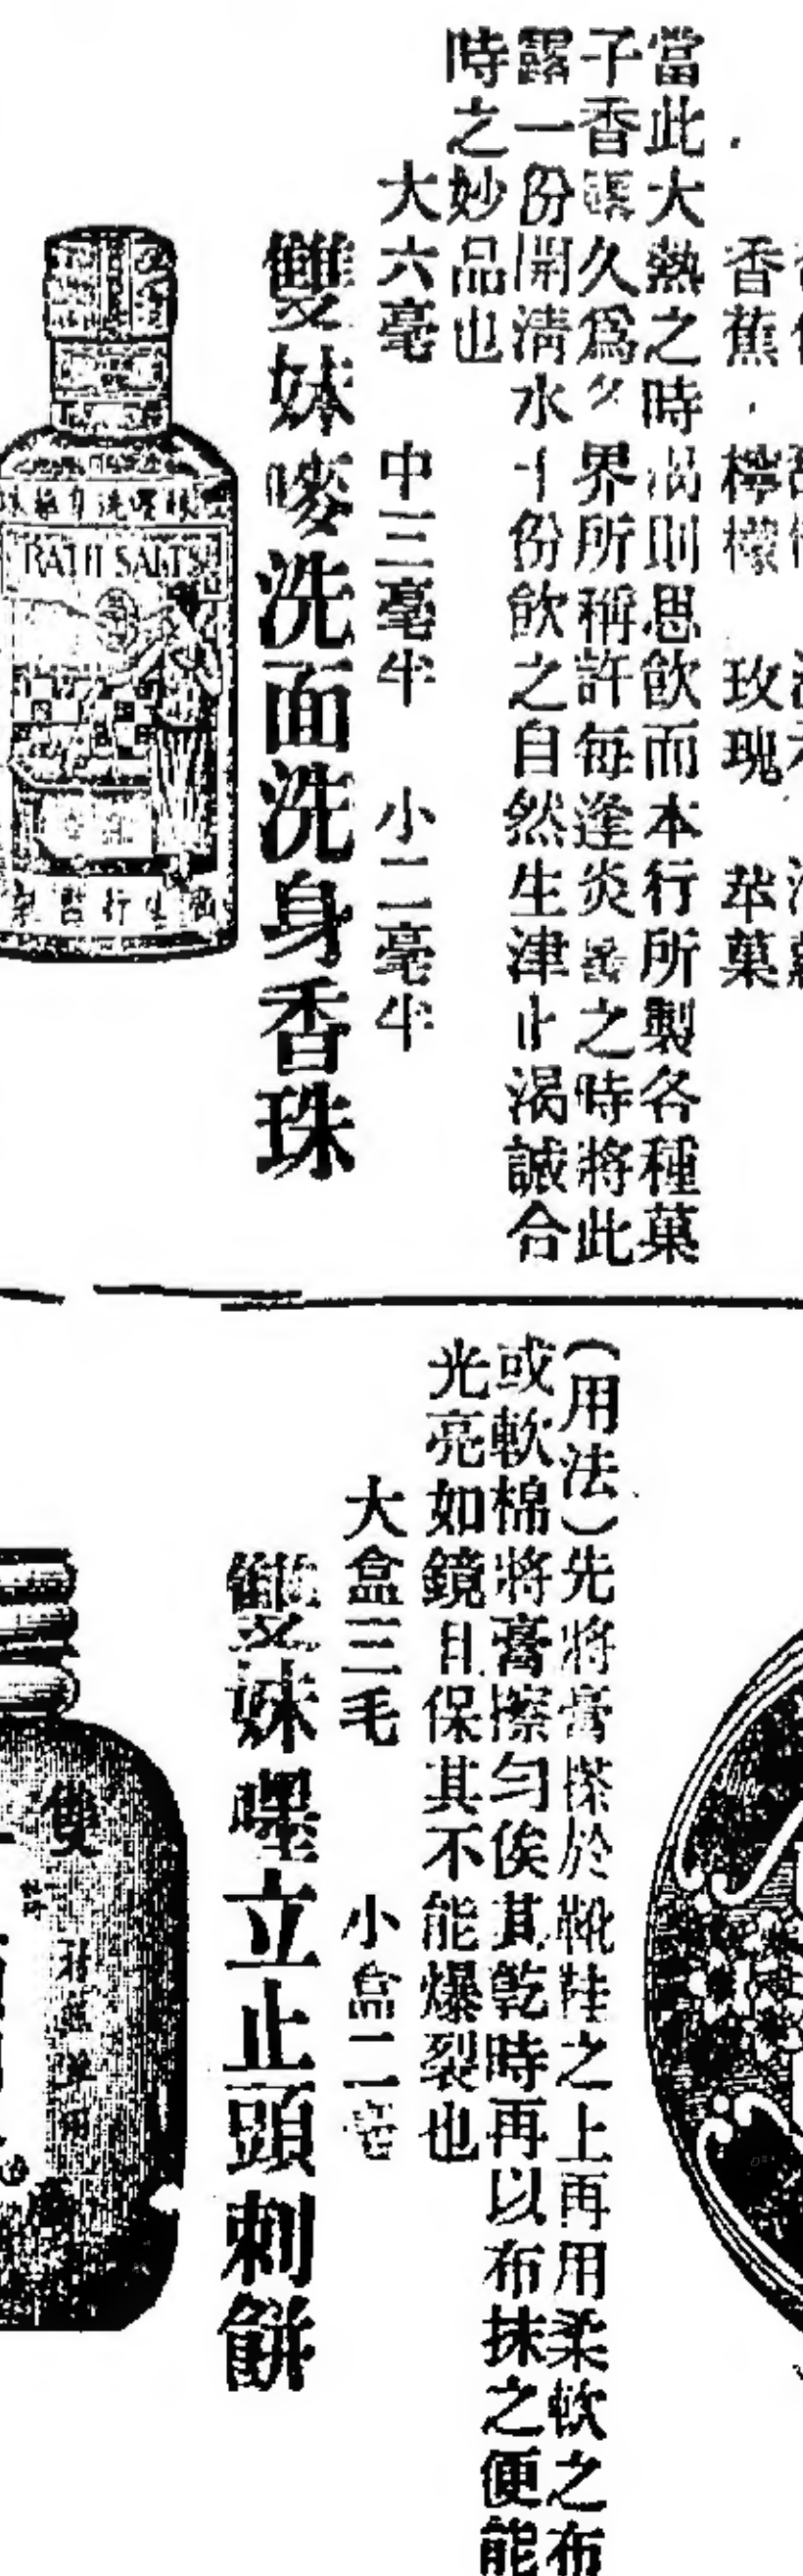 香蕉 檸檬 玫瑰 苹菓
當此大熱之時渴則思飲而本行所製各種菓
子香露久爲各界所稱許每逢炎暑之時將此
露一份開清水十份飲之自然生津止渴誠合
時之妙品也
大六毫 中三毫半 小二毫半
雙妹嘜洗面洗身香珠
BATH SALTS
(用法)先將膏搽於靴鞋之上再用柔軟之布
或軟棉將膏擦匀俟其乾時再以布抹之便能
光亮如鏡且保其不能爆裂也
大盒三毛 小盒二毫
雙妹嘿立止頭刺餅
雙